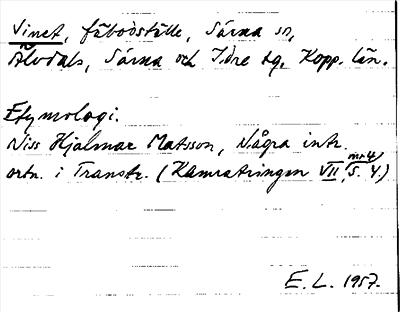 Vinet, fäbodställe, Särna sn,
Älvdals, Särna och Idre tg, Kopp. län.
Etymologi.
Niss Hjalmar Matsson, Några intr.
ortn. i Transtr. (Kamratringen VII, nr 4, S. 4.)
E. L. 1957.